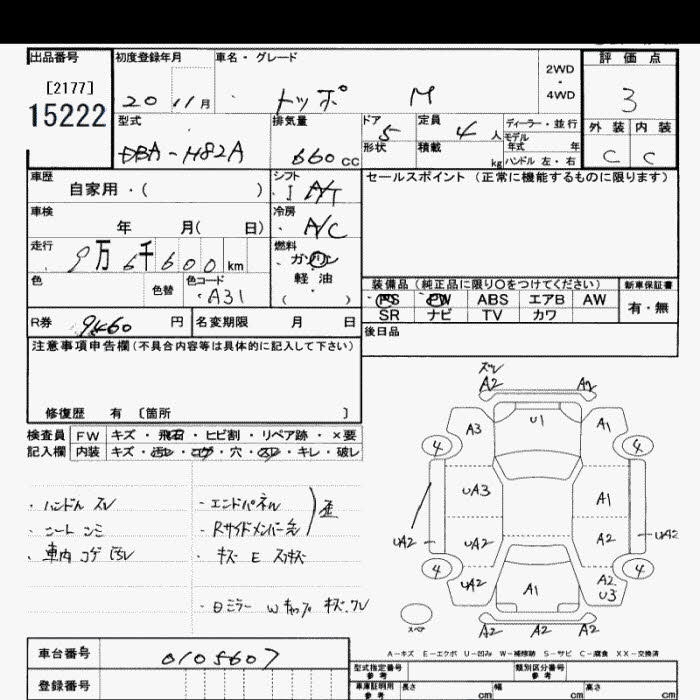 出品番号 初度登録年月 車名・グレード 2WD・4WD 評価点
[2177]
15222
20 11月 トッポ M 3
型式 排気量 ドア 定員 ディーラー・並行 外装 内装
DBA-H82A 660cc 5 4人 モデル年式 年
形状 積載 kg ハンドル 左・右 C C
車歴 シフト セールスポイント(正常に機能するものに限ります)
自家用・( ) I A/T
車検 冷房
年 月( 日) A/C
走行 燃料
9万6千600km ガソリン
軽油
( )
色 色替 色コード
A31
装備品(純正品に限り○をつけてください) 新車保証書
PS PW ABS エアB AW 有・無
SR ナビ TV カワ
R券 9460円 名変期限 月 日 後日品
注意事項申告欄(不具合内容等は具体的に記入して下さい)
修復歴 有 〔箇所 〕
検査員 FW キズ・飛石・ヒビ割・リペア跡・×要
記入欄 内装 キズ・汚レ・コゲ・穴・スレ・キレ・破レ
・ハンドル スレ ・エンドパネル
・シート シミ ・Rサイドメンバー先
・車内 コゲ 汚レ ・キズ E スリキズ
ズレ
A2 A2
A3 U1 A1
4 4
UA3 A1
UA2 UA2 A2 UA2
4 4
UA2 A1 A2
U3
スペア
A2 A2 A2
A-キズ E-エクボ U-凹み W-補修跡 S-サビ C-腐食 XX-交換済
車台番号 0105607
登録番号
型式指定番号 参考 類別区分番号 参考
車庫証明用 参考 長さ cm 幅 cm 高さ cm